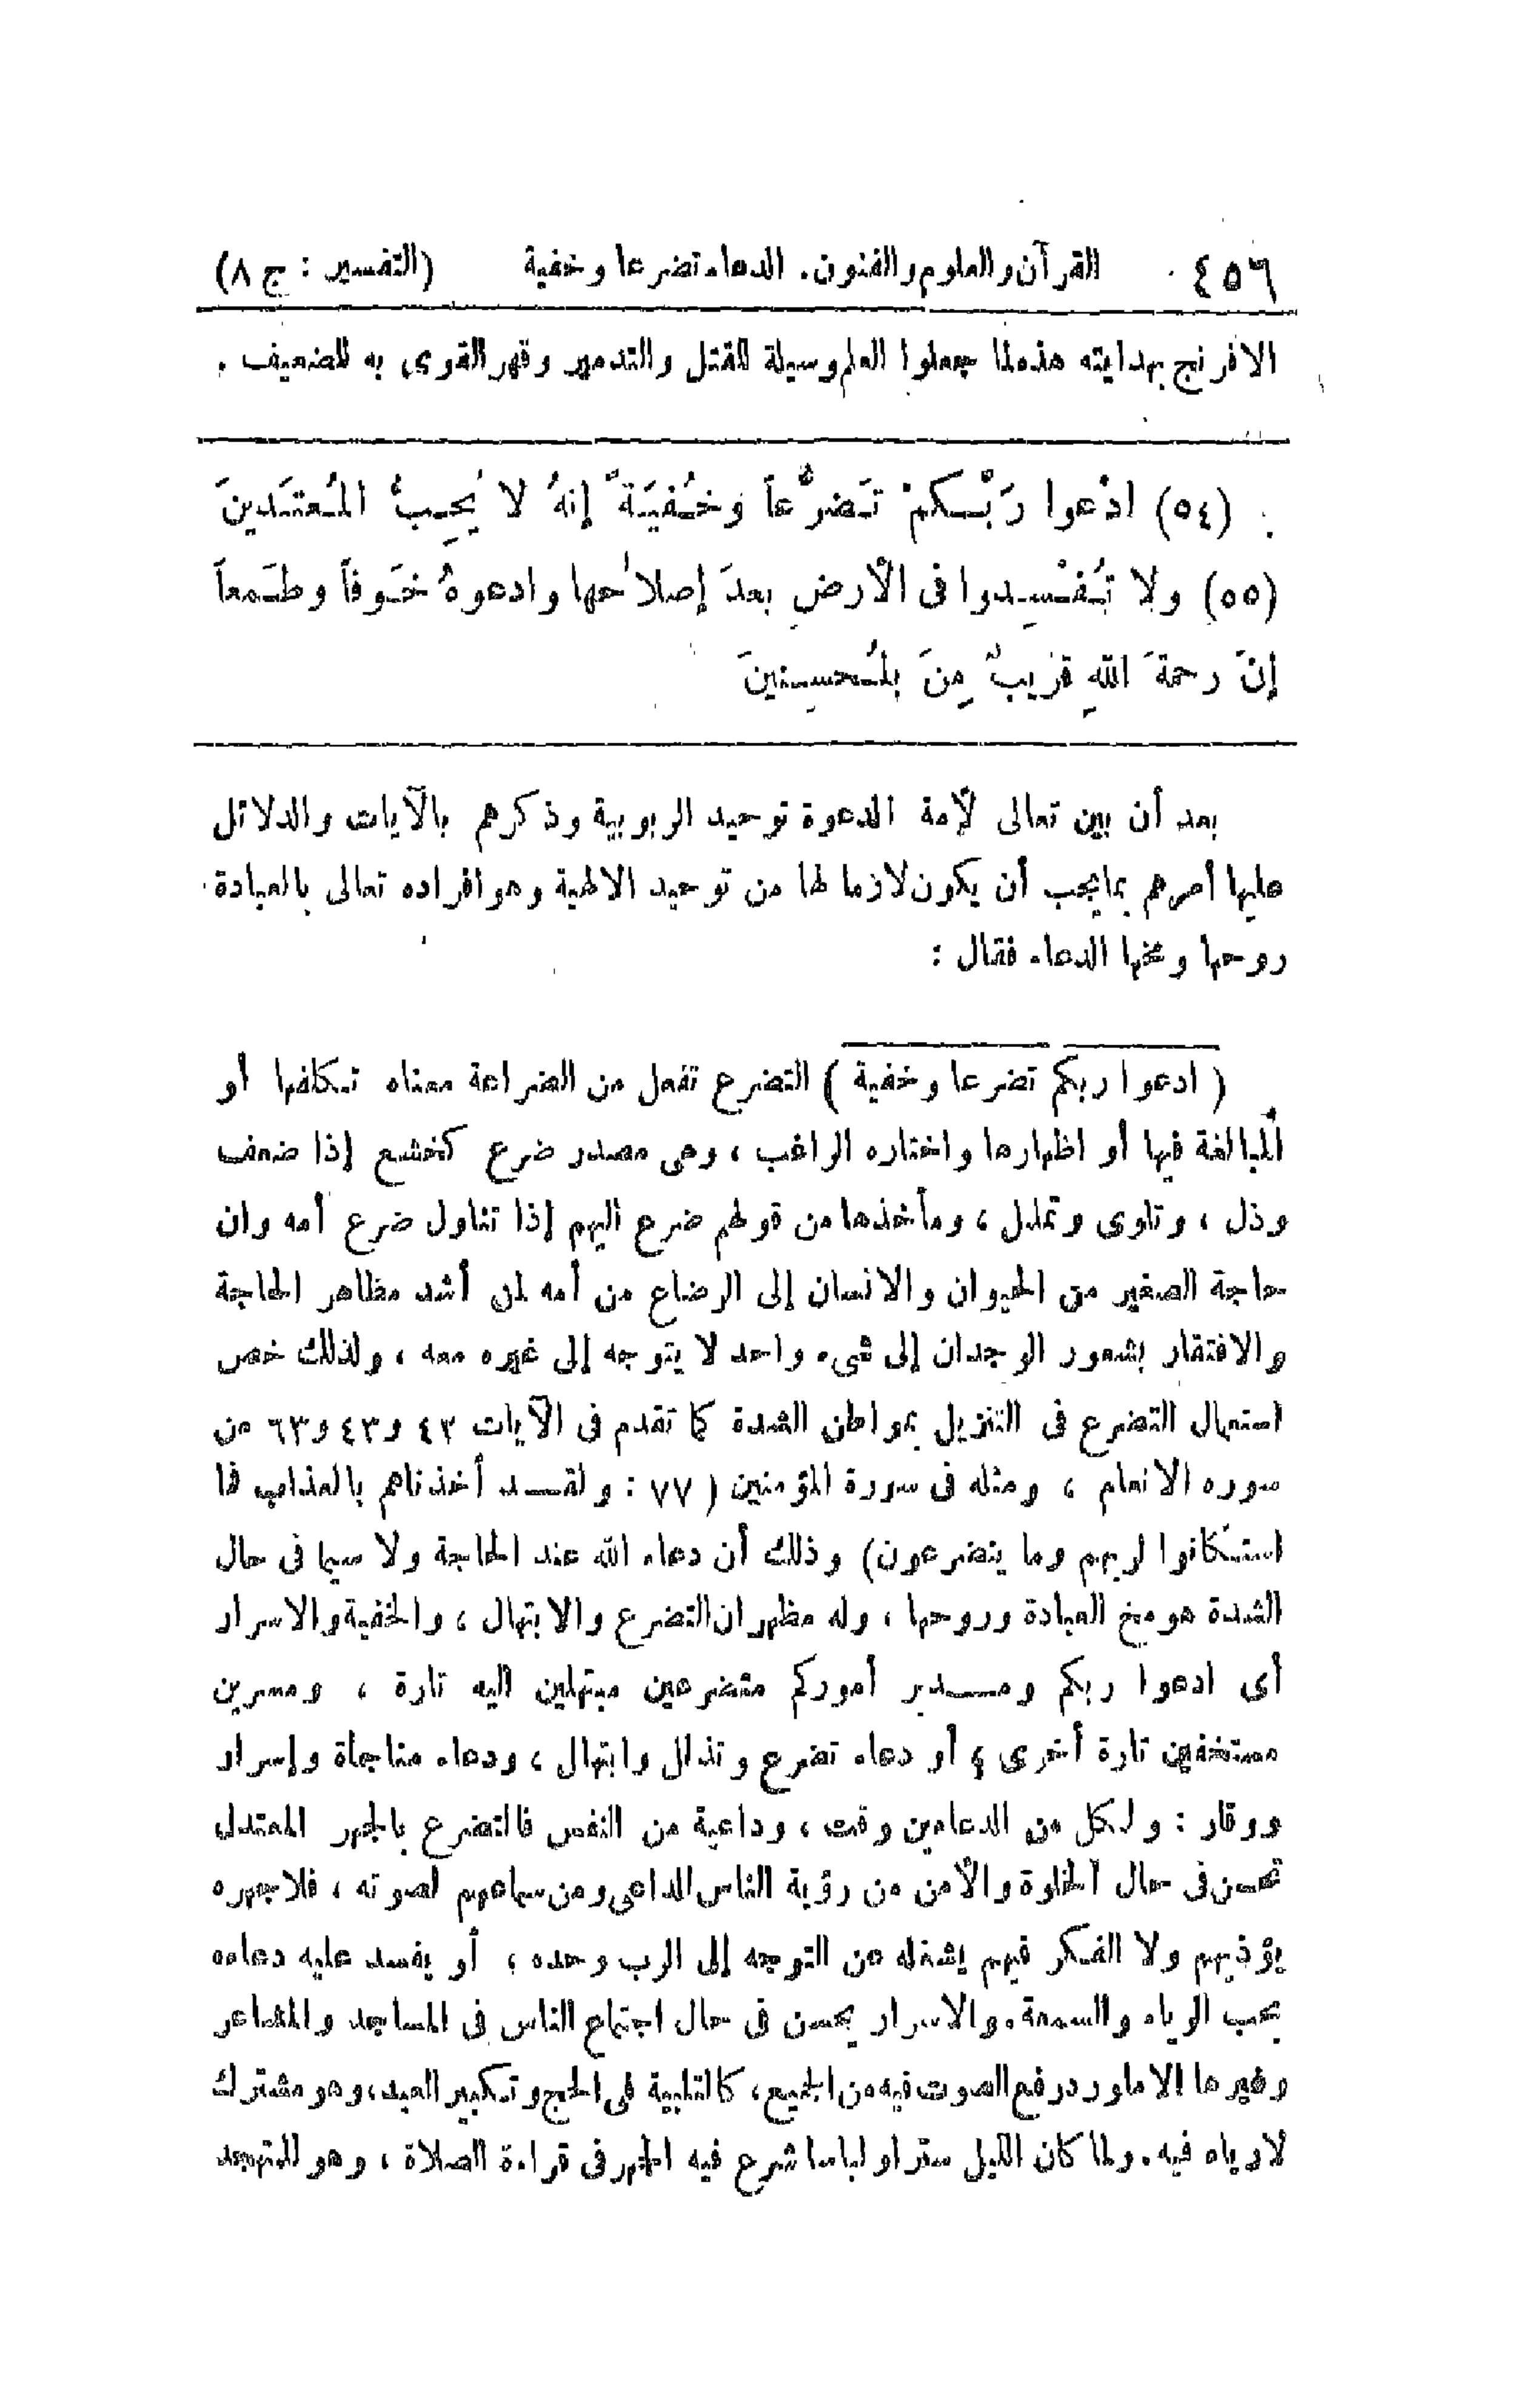 ٤٥٦ القرآن والعلوم والفنون. الدعاء تضرعا وخفية (التفسير : ج ٨)
الافرنج بهدايته هذه لما جعلوا العلم وسيلة للقتل والتدمير وقهر القوى به للضعيف .
(٥٤) ادْعوا رَبَّـكمْ تَـضرُّعاً وَخُـفيَـةً إنهُ لا يُحِـبُّ المُـعتَـدينَ
(٥٥) ولا تُـفْـسِـدوا فى الأرضِ بعدَ إصلاحها وادعوهُ خَـوفاً وطَـمعاً
إنَّ رحمةَ اللهِ قريبٌ مِنَ المُـحسِـنينَ
بعد أن بين تعالى لأمة الدعوة توحيد الربوبية وذكرهم بالآيات والدلائل
عليها أمرهم بما يجب أن يكون لازما لها من توحيد الالهية وهو افراده تعالى بالعبادة
روحها ومخها الدعاء فقال :
( ادعوا ربكم تضرعا وخفية ) التضرع تفعل من الضراعة معناه تكلفها أو
المبالغة فيها أو اظهارها واختاره الراغب ، وهى مصدر ضرع كخشع إذا ضعف
وذل ، وتلوى وتململ ، ومأخذها من قولهم ضرع اليهم إذا تناول ضرع أمه وان
حاجة الصغير من الحيوان والانسان إلى الرضاع من أمه لمن أشد مظاهر الحاجة
والافتقار بشعور الوجدان إلى شىء واحد لا يتوجه إلى غيره معه ، ولذلك خص
استعمال التضرع فى التنزيل بمواطن الشدة كما تقدم فى الآيات ٤٢ و٤٣ و٦٣ من
سوره الانعام ، ومثله فى سورة المؤمنين ( ٧٧ : ولقـد أخذناهم بالعذاب فما
استكانوا لربهم وما يتضرعون) وذلك أن دعاء الله عند الحاجة ولا سيما فى حال
الشدة هو مخ العبادة وروحها ، وله مظهران التضرع والابتهال ، والخفية والاسرار
أى ادعوا ربكم ومـدبر أموركم متضرعين مبتهلين اليه تارة ، ومسرين
مستخفين تارة أخرى ؛ أو دعاء تضرع وتذلل وابتهال ، ودعاء مناجاة وإسرار
ووقار : ولكل من الدعاءين وقت ، وداعية من النفس فالتضرع بالجهر المعتدل
تحسن فى حال الخلوة والأمن من رؤية الناس للداعى ومن سماعهم لصوته ، فلا جهره
يؤذيهم ولا الفكر فيهم يشغله عن التوجه إلى الرب وحده ؛ أو يفسد عليه دعاءه
بحب الرياء والسمعة. والاسرار يحسن فى حال اجتماع الناس فى المساجد والمشاعر
وغيرها الا ما ورد رفع الصوت فيه من الجميع، كالتلبية فى الحج وتكبير العيد، وهو مشترك
لا رياء فيه. ولما كان الليل سترا ولباسا شرع فيه الجهر فى قراءة الصلاة ، وهو للمتهجد